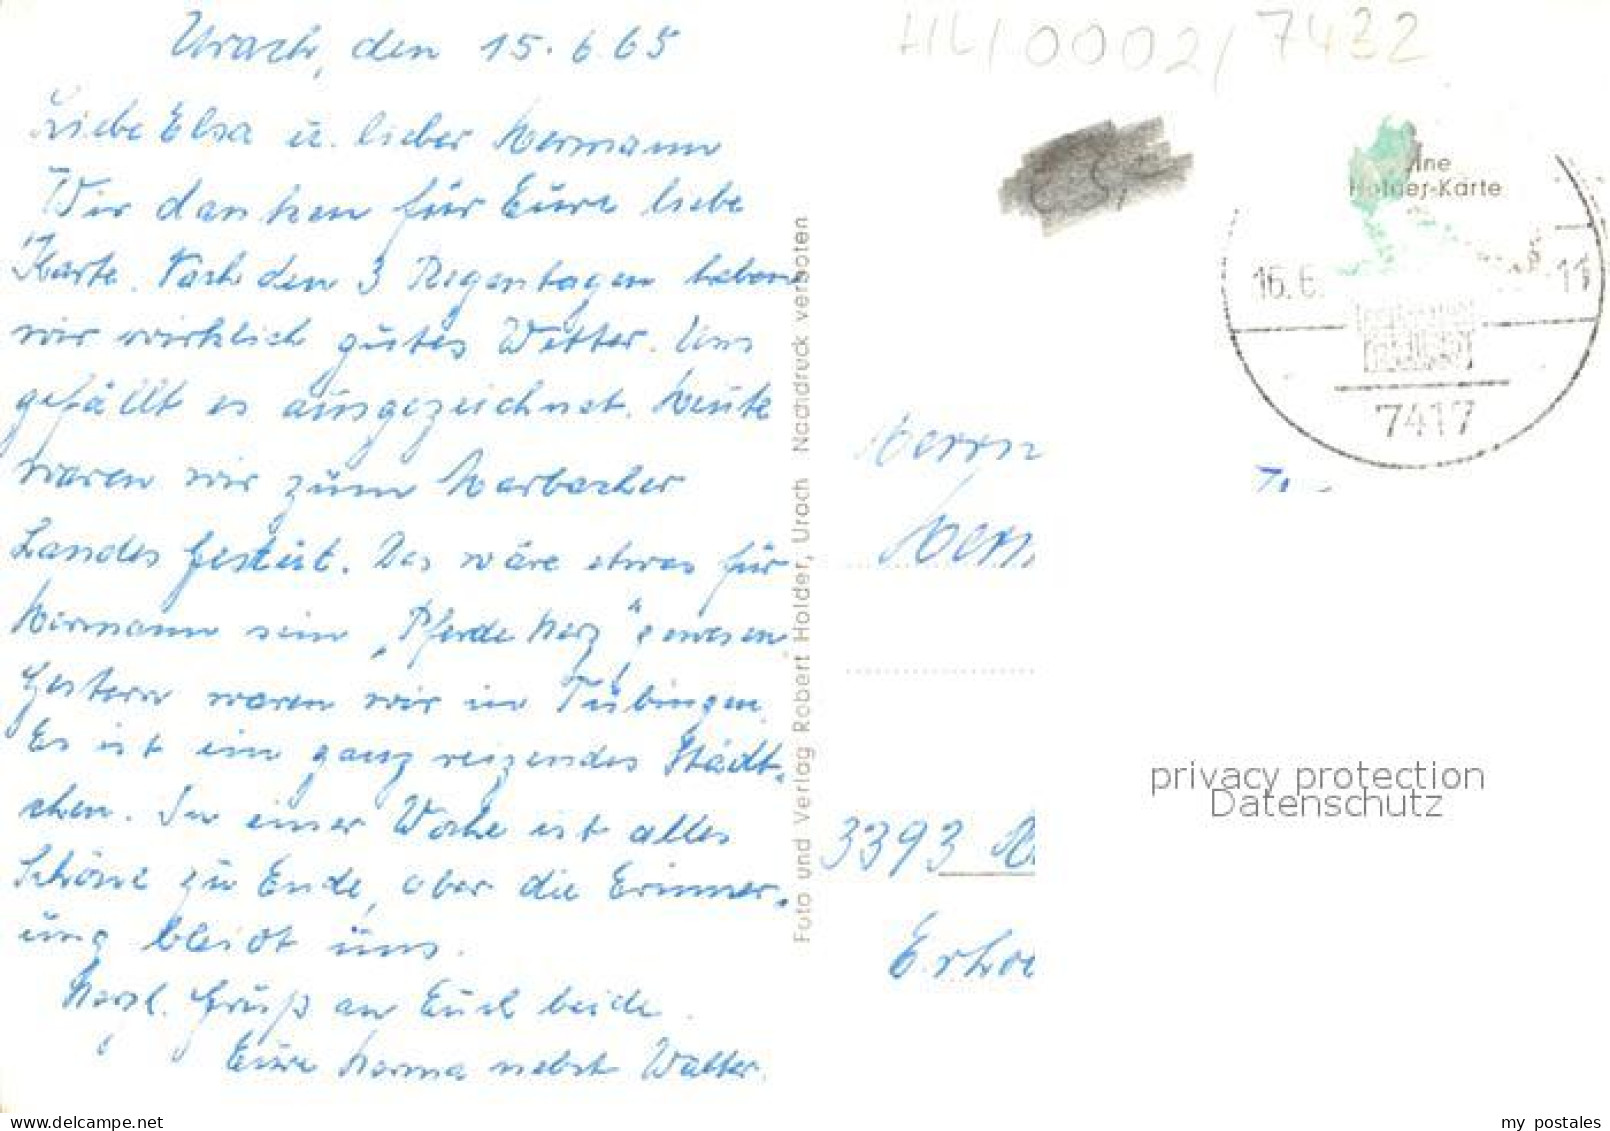 Urach, den 15.6.65
Liebe Elsa u. lieber Hermann
Wir danken für Eure liebe
Karte. Nach den 3 Regentagen haben
wir wirklich gutes Wetter. Uns
gefällt es ausgezeichnet. Heute
waren wir zum Marbacher
Landes Gestüt. Das wäre etwas für
Hermann sein „Pferde Herz" gewesen
Gestern waren wir in Tübingen.
Es ist ein ganz reizendes Städt-
chen. In einer Woche ist alles
Schöne zu Ende, aber die Erinner-
ung bleibt uns.
Herzl. Grüß an Euch beide.
Eure Herma nebst Walter.
Foto und Verlag Robert Holder, Urach Nachdruck verboten
HL/0002/7432
ine
Holder-Karte
16.6.
11
7417
Herrn
Herm
3393
Erho
privacy protection
Datenschutz
www.delcampe.net
my_postales